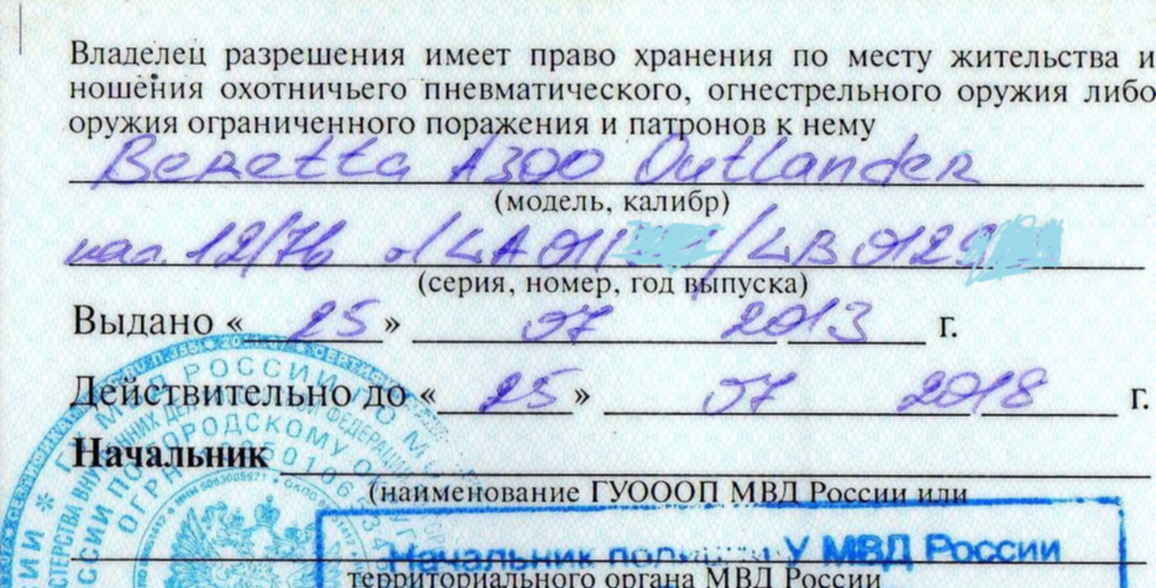 Владелец разрешения имеет право хранения по месту жительства и
ношения охотничьего пневматического, огнестрельного оружия либо
оружия ограниченного поражения и патронов к нему
Beretta A300 Outlander
(модель, калибр)
кал. 12/76 LA011 / LB0129
(серия, номер, год выпуска)
Выдано « 25 » 07 2013 г.
Действительно до « 25 » 07 2018 г.
Начальник
(наименование ГУОООП МВД России или
Начальник У МВД России
территориального органа МВД России